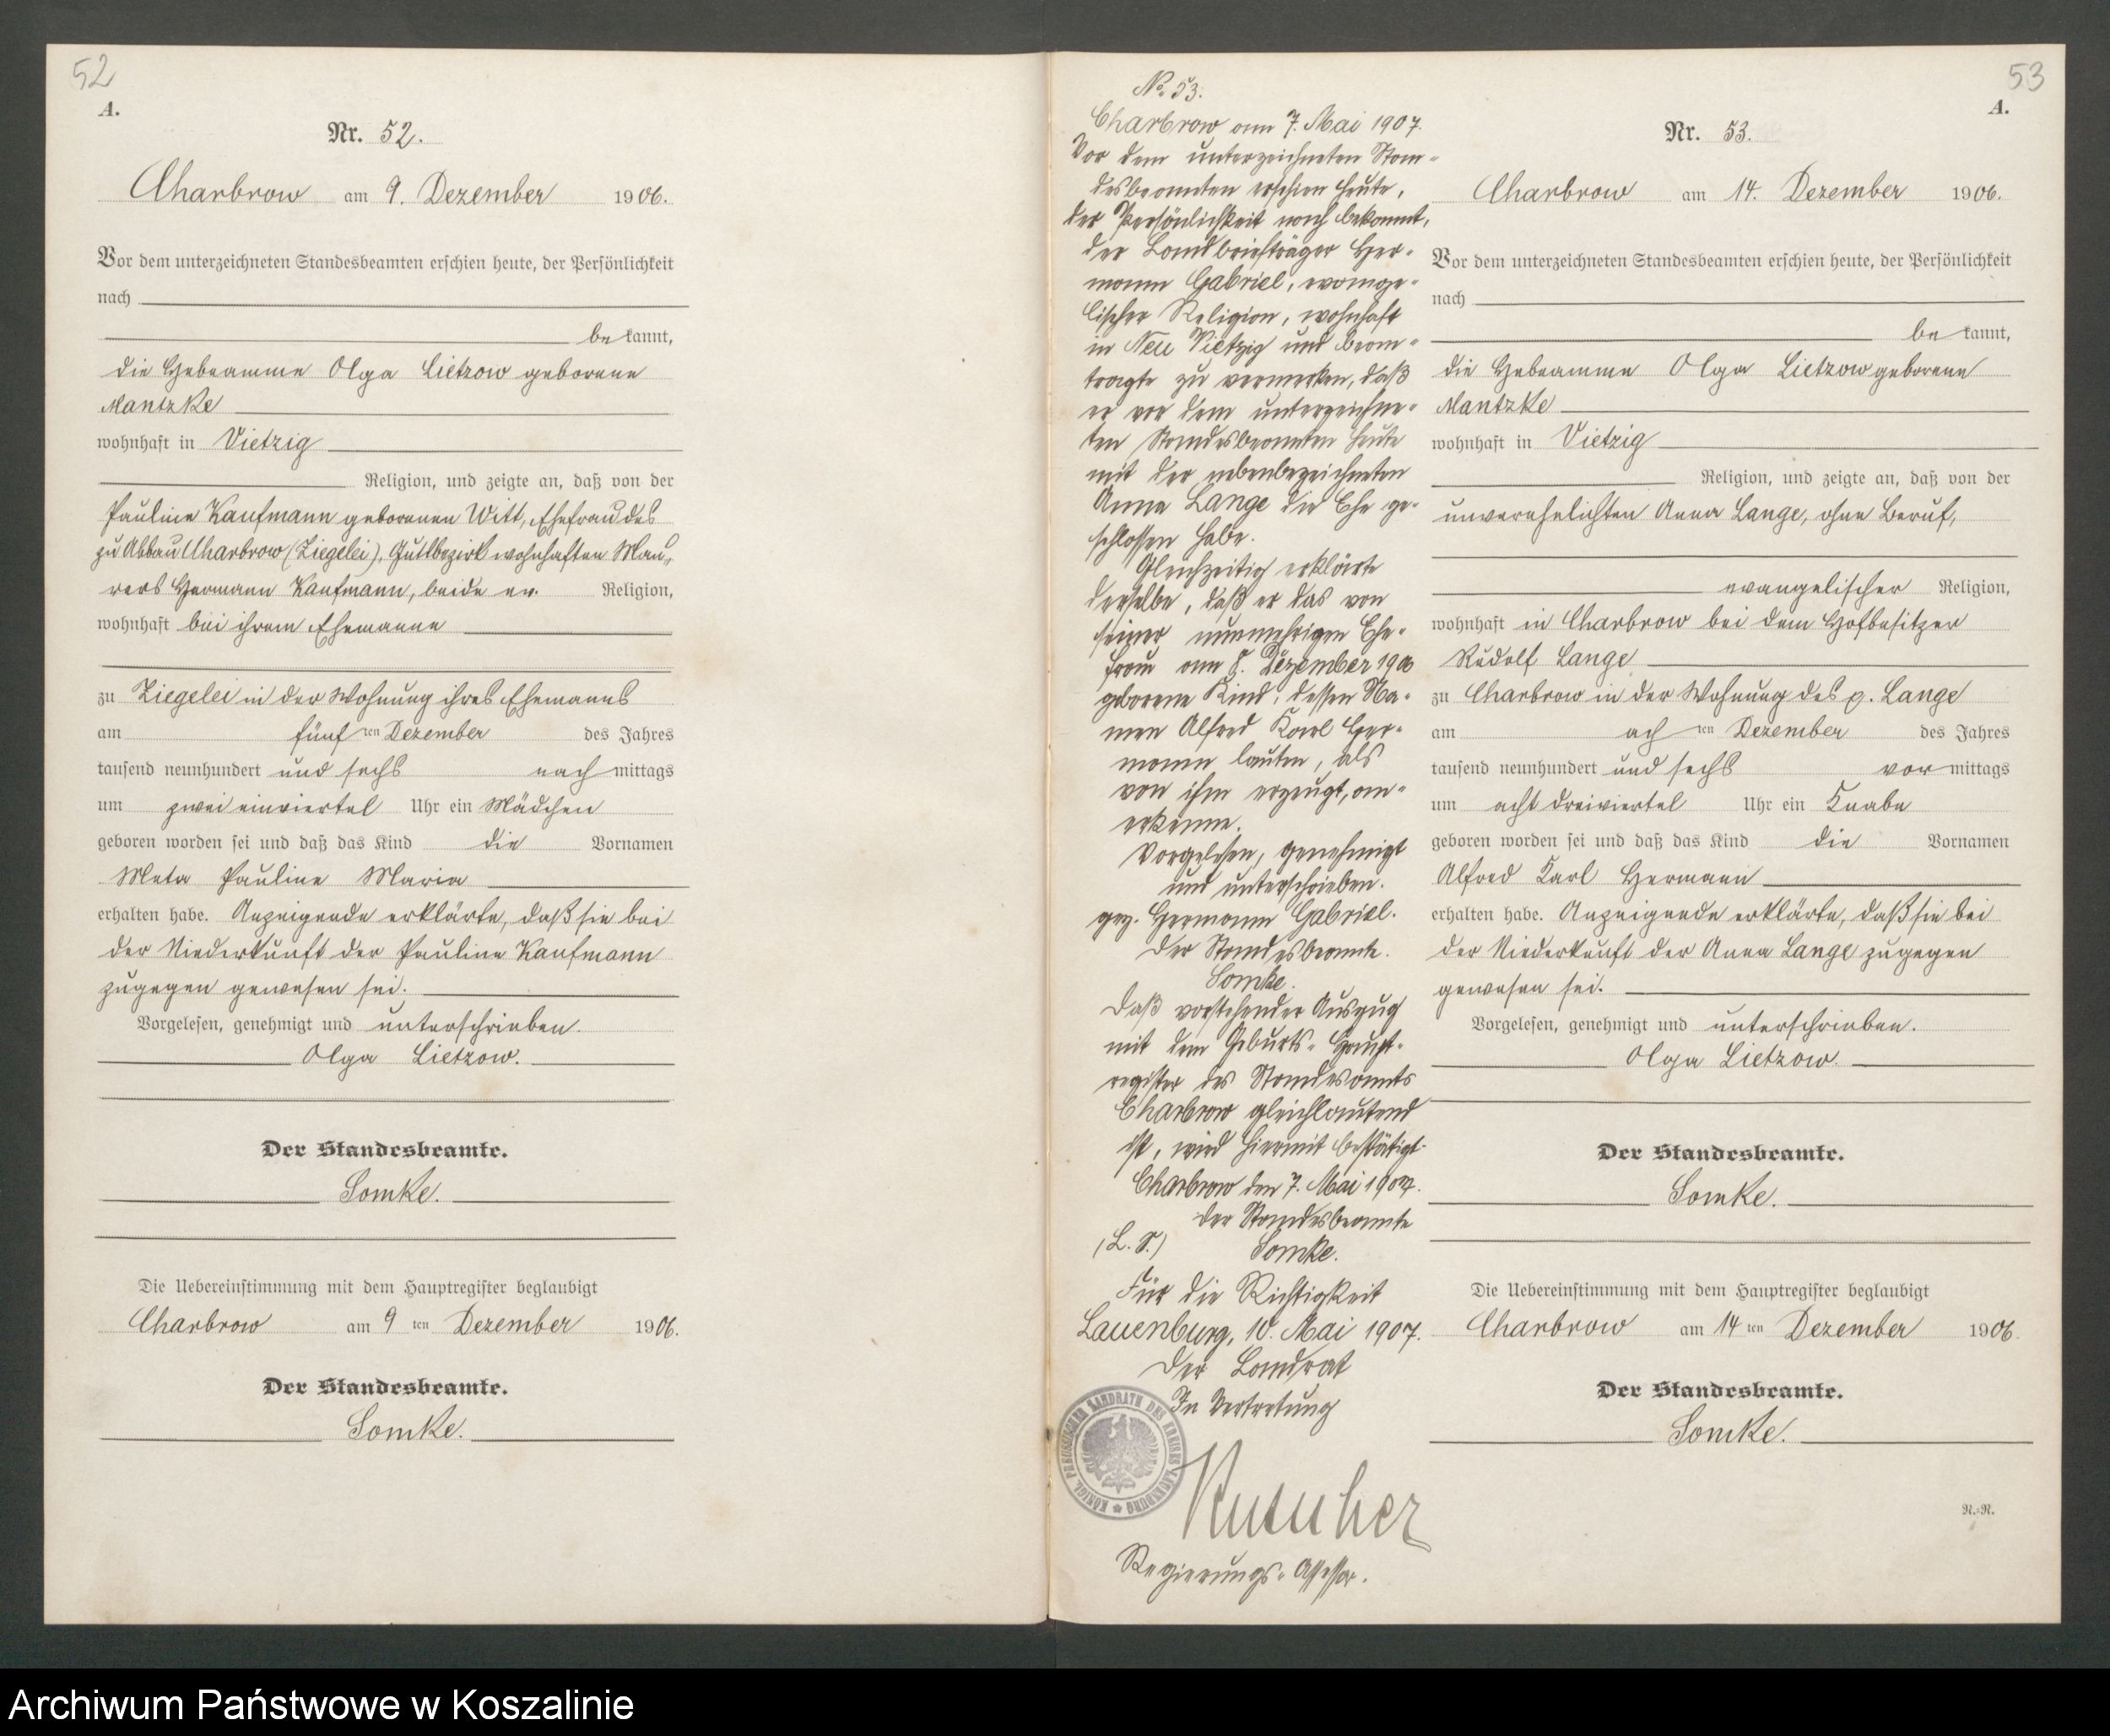 52
A.
Nr. 52.
Charbrow am 9. Dezember 1906.
Vor dem unterzeichneten Standesbeamten erschien heute, der Persönlichkeit
nach
be kannt,
die Hebeamme Olga Lietzow geborene
Mantzke
wohnhaft in Vietzig
Religion, und zeigte an, daß von der
Pauline Kaufmann geborenen Witt, Ehefrau des
zu Abbau Charbrow (Ziegelei), Gutsbezirk wohnhaften Mau„
rers Hermann Kaufmann, beide ev. Religion,
wohnhaft bei ihrem Ehemanne
zu Ziegelei in der Wohnung ihres Ehemanns
am fünf ten Dezember des Jahres
tausend neunhundert und sechs nach mittags
um zwei einviertel Uhr ein Mädchen
geboren worden sei und daß das Kind die Vornamen
Meta Pauline Maria
erhalten habe. Anzeigende erklärte, daß sie bei
der Niederkunft der Pauline Kaufmann
zugegen gewesen sei.
Vorgelesen, genehmigt und unterschrieben.
Olga Lietzow.
Der Standesbeamte.
Somke.
Die Uebereinstimmung mit dem Hauptregister beglaubigt
Charbrow am 9 ten Dezember 1906.
Der Standesbeamte.
Somke.
No. 53.
Charbrow am 7. Mai 1907.
Vor dem unterzeichneten Stan-
desbeamten erschien heute,
der Persönlichkeit nach bekannt,
der Landbriefträger Her-
mann Gabriel, evange-
lischer Religion, wohnhaft
in Neu Vietzig und bean-
tragte zu vermerken, daß
er vor dem unterzeichne-
ten Standesbeamten heute
mit der nebenbezeichneten
Anna Lange die Ehe ge-
schlossen habe.
Gleichzeitig erklärte
derselbe, daß er das von
seiner nunmehrigen Ehe-
frau am 8. Dezember 1906
geborene Kind, dessen Na-
men Alfred Karl Her-
mann lauten, als
von ihm erzeugt, an-
erkenne.
Vorgelesen, genehmigt
und unterschrieben.
gez. Hermann Gabriel.
Der Standesbeamte.
Somke.
Daß vorstehender Auszug
mit dem Geburts-Haupt-
register des Standesamts
Charbrow gleichlautend
ist, wird hiermit bestätigt.
Charbrow den 7. Mai 1907.
Der Standesbeamte
(L. S.) Somke.
Für die Richtigkeit
Lauenburg, 10. Mai 1907.
Der Landrat
In Vertretung
KÖNIGL. PREUSSISCHER LANDRATH DES KREISES LAUENBURG
Regierungs-Assessor.
53
A.
Nr. 53.
Charbrow am 14. Dezember 1906.
Vor dem unterzeichneten Standesbeamten erschien heute, der Persönlichkeit
nach
be kannt,
die Hebeamme Olga Lietzow geborene
Mantzke
wohnhaft in Vietzig
Religion, und zeigte an, daß von der
unverehelichten Anna Lange, ohne Beruf,
evangelischer Religion,
wohnhaft in Charbrow bei dem Hofbesitzer
Rudolf Lange
zu Charbrow in der Wohnung des p. Lange
am ach ten Dezember des Jahres
tausend neunhundert und sechs vor mittags
um acht dreiviertel Uhr ein Knabe
geboren worden sei und daß das Kind die Vornamen
Alfred Karl Hermann
erhalten habe. Anzeigende erklärte, daß sie bei
der Niederkunft der Anna Lange zugegen
gewesen sei.
Vorgelesen, genehmigt und unterschrieben.
Olga Lietzow.
Der Standesbeamte.
Somke.
Die Uebereinstimmung mit dem Hauptregister beglaubigt
Charbrow am 14 ten Dezember 1906.
Der Standesbeamte.
Somke.
N.-N.
Archiwum Państwowe w Koszalinie